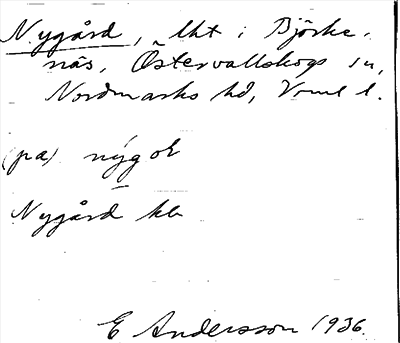 Nygård, lht i Björke-
näs, Östervallskogs sn,
Nordmarks hd, Vrml l.
(pa) nýgoɫ
Nygård kb
E Andersson 1936.